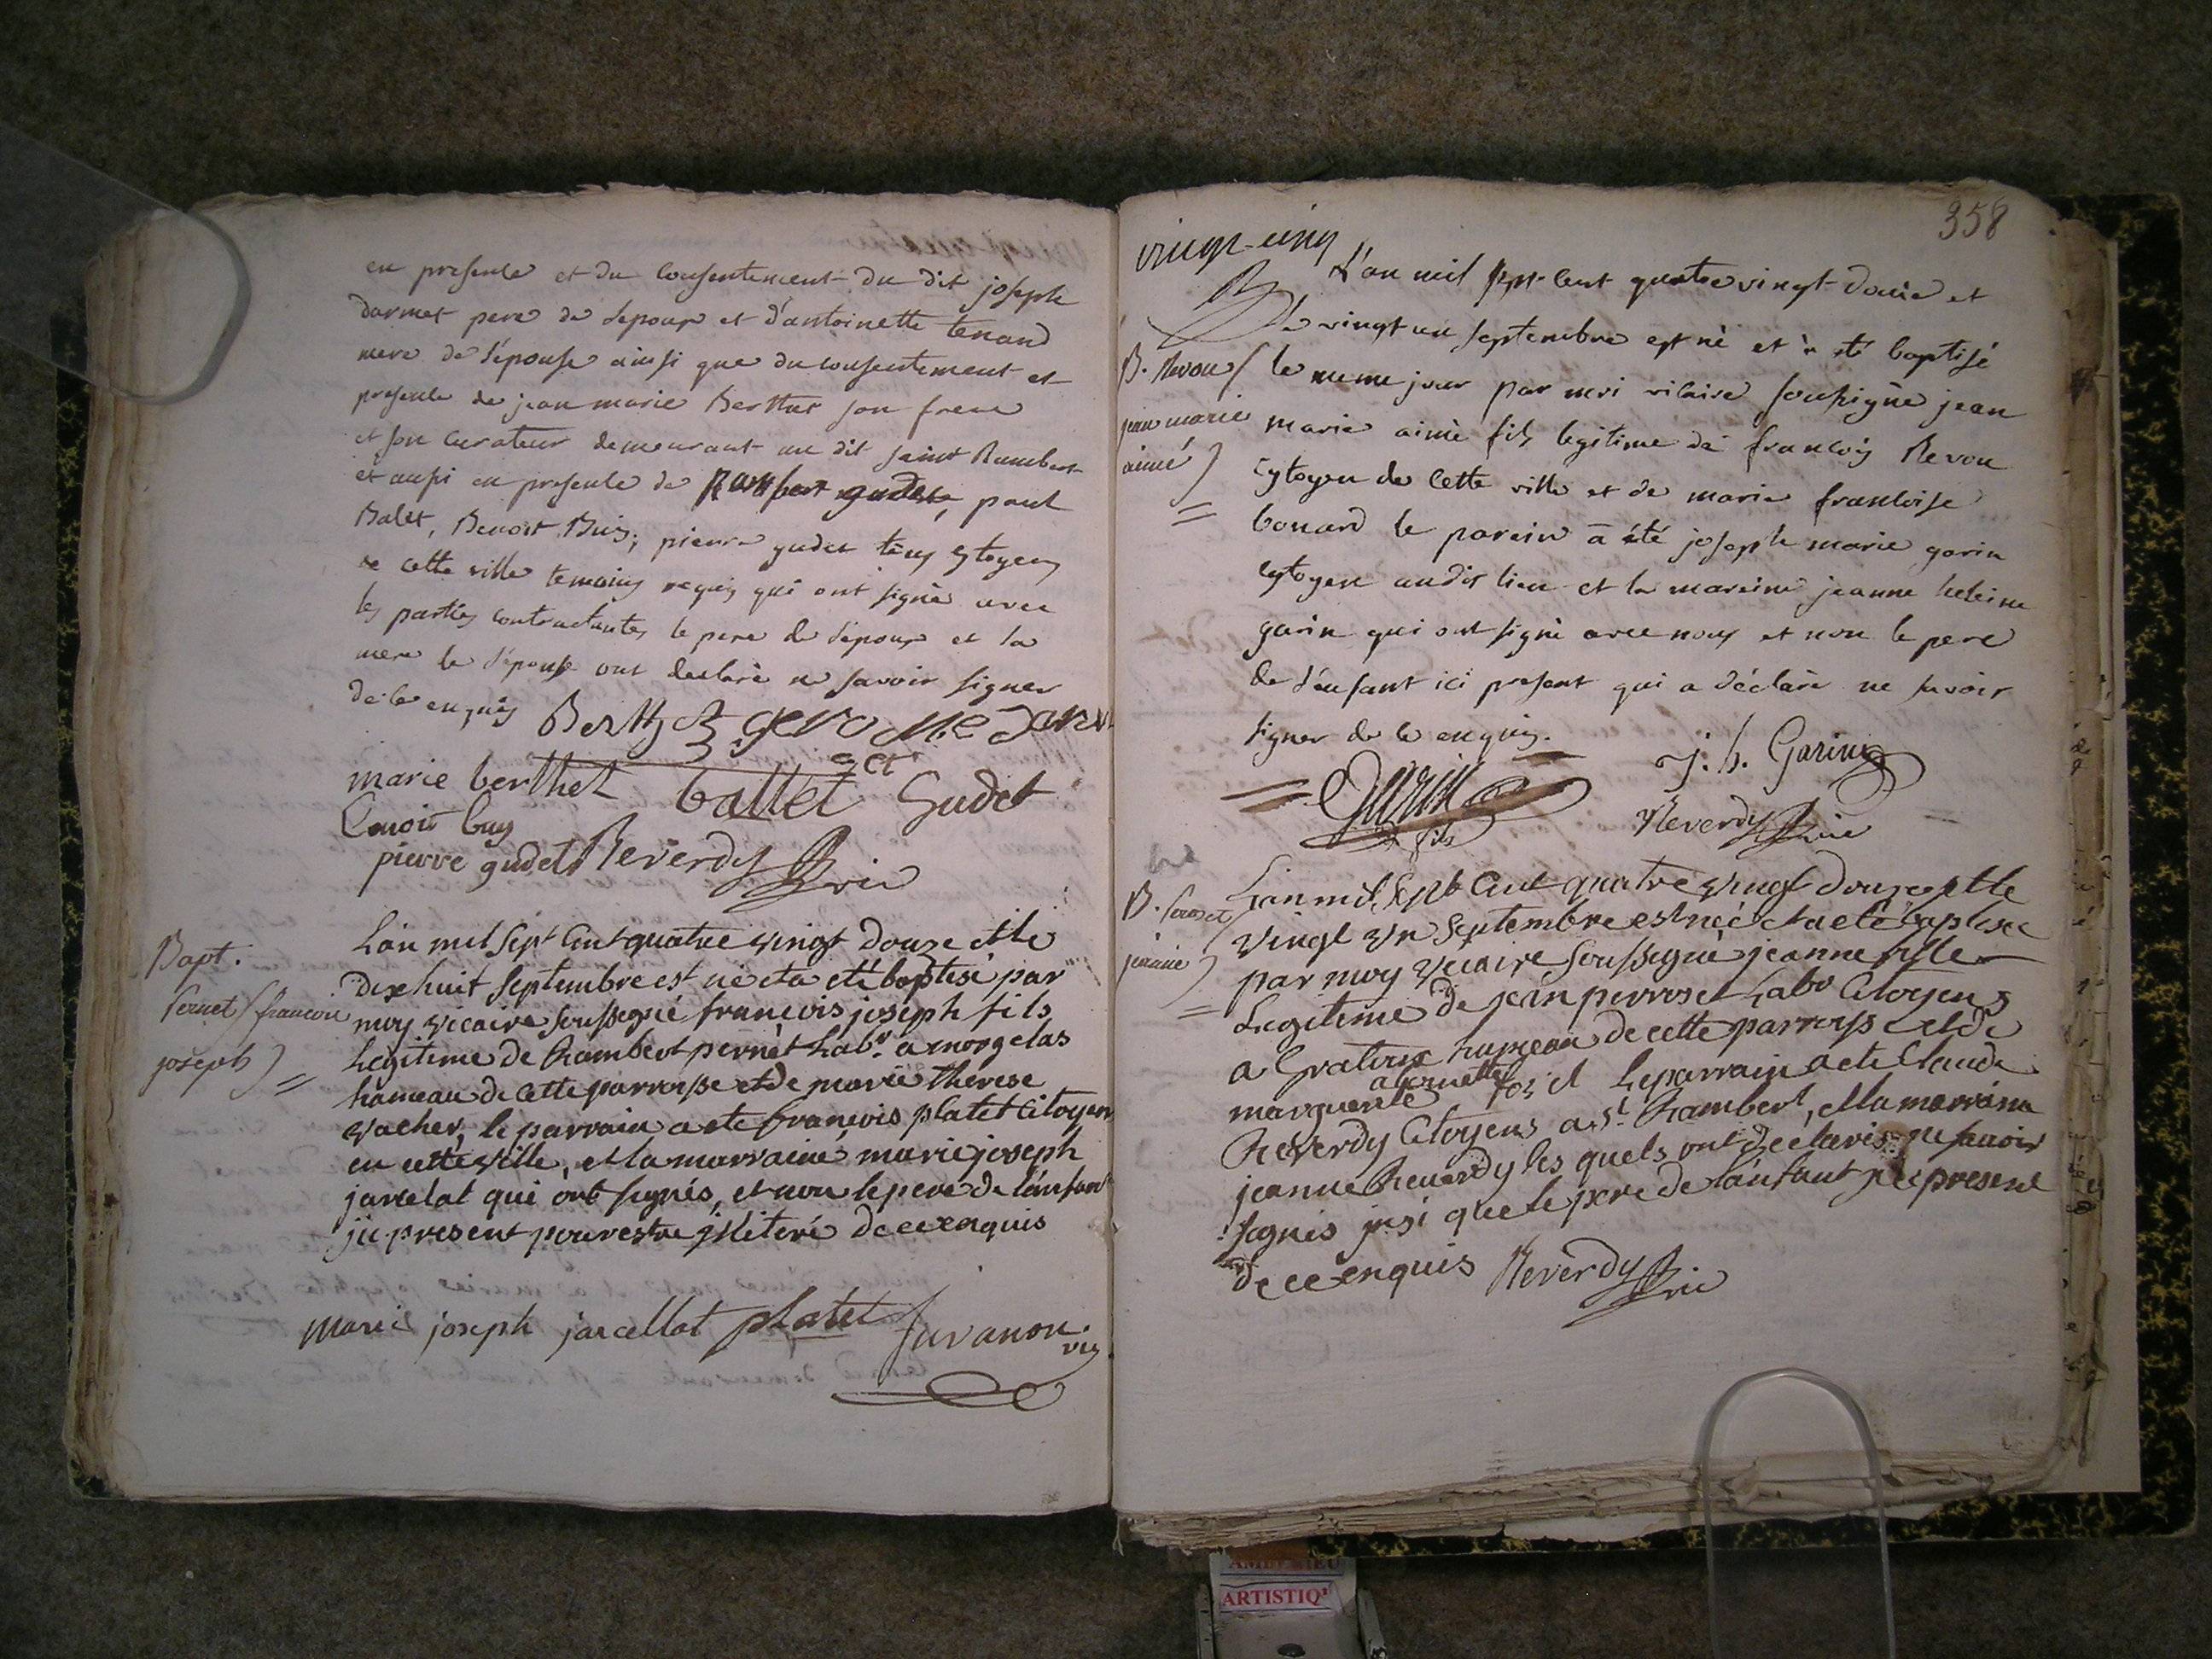 en presence et du consentement du dit joseph
darmet pere de l'epoux et d'antoinette tenand
mere de l'épouse ainsi que du consentement et
presence de jean marie Berthet son frere
et son curateur demeurant au dit saint Rambert
et aussi en presence de Rambert gudet, paul
Balet, Benoit Buis, pierre gudet tous cytoyens
de cette ville temoins requis qui ont signé avec
les parties contractantes le pere de l'epoux et la
mere de l'épouse ont declaré ne savoir signer
de ce enquis Berthet gerome dar
met
marie berthet ballet Gudet
benoit buy
pierre gudet Reverdy vic
Bapt.
Pernet francois
joseph
L'an mil sept cent quatre vingt douze et le
dix huit septembre est né et a eté baptisé par
moy vicaire soussigné francois joseph fils
legitime de Rambert pernet Labr. a morgelas
hameau de cette parroisse et de marie therese
vacher, le parrain a ete francois platet Citoyen
en cette ville, et la marraine marie joseph
jarcelat qui ont signés, et non le pere de l'enfant
jci present pour estre jlliteré de ce enquis
Marie joseph jarcellat platet Juvanon
vic
358
vingt-cinq
L'an mil sept cent quatre vingt douze et
le vingt un septembre est né et a été baptisé
B. Revon
jean marie
aimé
le meme jour par moi vicaire soussigné jean
marie aimé fils legitime de francois Revon
cytoyen de cette ville et de marie francoise
bonard le parein a été joseph marie garin
cytoyen audit lieu et la mareine jeanne heleine
garin qui ont signé avec nous et non le pere
de l'enfant ici present qui a déclaré ne savoir
signer de ce enquis.
Garin
fils
J. h. Garin
Reverdy vic
B.
jeanne
L'an mil sept cent quatre vingt douze et le
vingt un septembre est neé et a eté baptisee
par moy vicaire soussigné jeanne fille
Legitime de jean perroset Labr Citoyens
a Gratoux hameau de cette parroisse et de
marguerite Le parrain a ete Claude
Reverdy Citoyens a St. Rambert, et la marraine
jeanne Reverdy les quels ont declarés ne savoir
signés jnsi que le pere de l'enfant jci present
de ce enquis Reverdy vic
ARTISTIQ